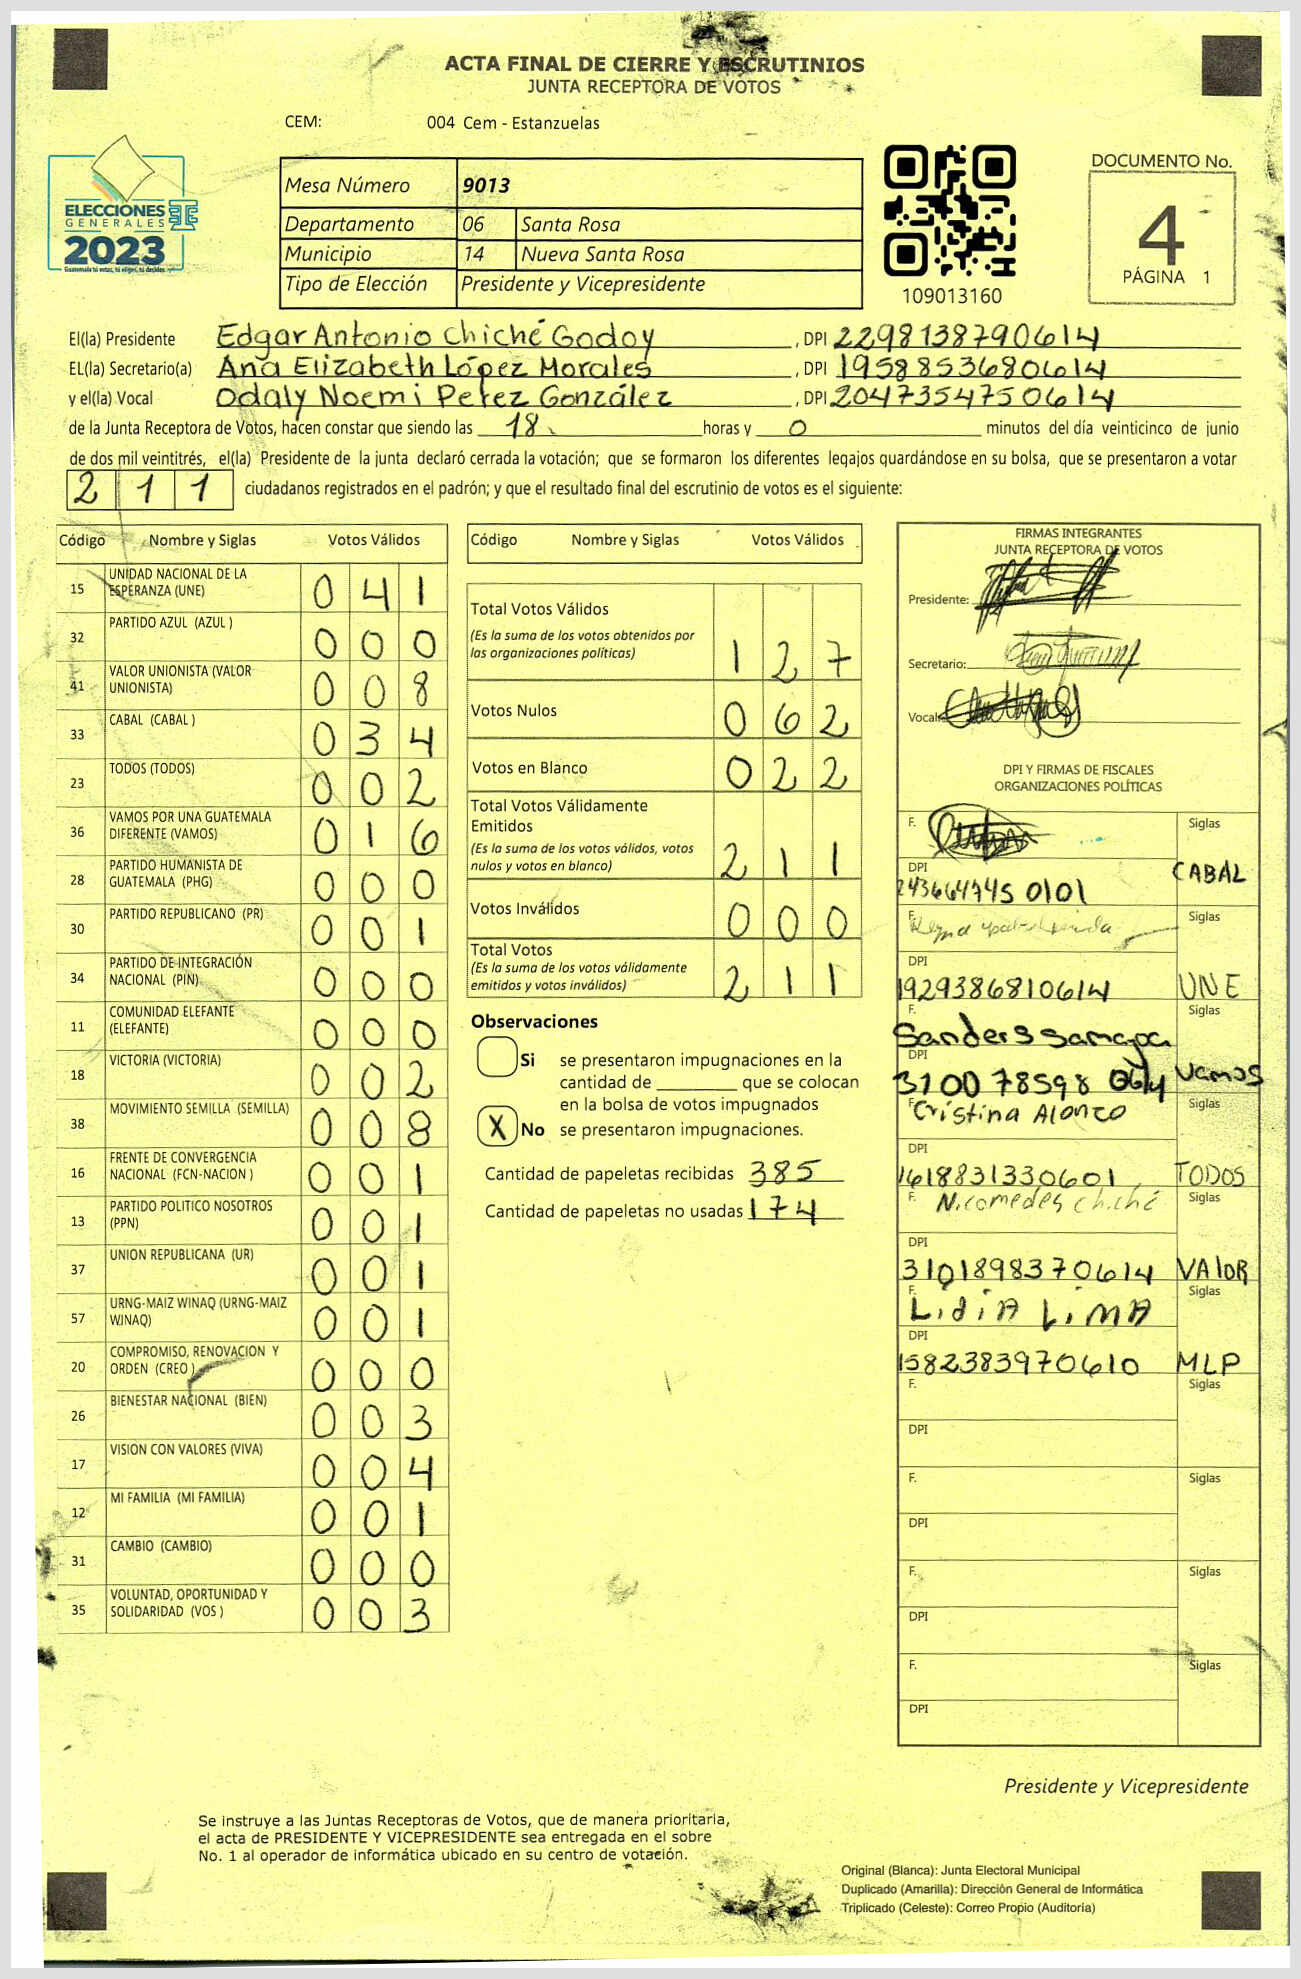 ACTA FINAL DE CIERRE Y ESCRUTINIOS
JUNTA RECEPTORA DE VOTOS
CEM: 004 Cem - Estanzuelas
ELECCIONES
GENERALES
2023
Guatemala tú votas, tú eliges, tú decides
Mesa Número 9013
Departamento 06 Santa Rosa
Municipio 14 Nueva Santa Rosa
Tipo de Elección Presidente y Vicepresidente
109013160
DOCUMENTO No.
4
PÁGINA 1
El(la) Presidente Edgar Antonio Chiché Godoy , DPI 2298138790614
EL(la) Secretario(a) Ana Elizabeth López Morales , DPI 1958853680614
y el(la) Vocal Odaly Noemi Perez González , DPI 2047354750614
de la Junta Receptora de Votos, hacen constar que siendo las 18 horas y 0 minutos del día veinticinco de junio
de dos mil veintitrés, el(la) Presidente de la junta declaró cerrada la votación; que se formaron los diferentes legajos quardándose en su bolsa, que se presentaron a votar
2 1 1 ciudadanos registrados en el padrón; y que el resultado final del escrutinio de votos es el siguiente:
Código Nombre y Siglas Votos Válidos
15 UNIDAD NACIONAL DE LA ESPERANZA (UNE) 0 4 1
32 PARTIDO AZUL (AZUL ) 0 0 0
41 VALOR UNIONISTA (VALOR UNIONISTA) 0 0 8
33 CABAL (CABAL ) 0 3 4
23 TODOS (TODOS) 0 0 2
36 VAMOS POR UNA GUATEMALA DIFERENTE (VAMOS) 0 1 6
28 PARTIDO HUMANISTA DE GUATEMALA (PHG) 0 0 0
30 PARTIDO REPUBLICANO (PR) 0 0 1
34 PARTIDO DE INTEGRACIÓN NACIONAL (PIN) 0 0 0
11 COMUNIDAD ELEFANTE (ELEFANTE) 0 0 0
18 VICTORIA (VICTORIA) 0 0 2
38 MOVIMIENTO SEMILLA (SEMILLA) 0 0 8
16 FRENTE DE CONVERGENCIA NACIONAL (FCN-NACION ) 0 0 1
13 PARTIDO POLITICO NOSOTROS (PPN) 0 0 1
37 UNION REPUBLICANA (UR) 0 0 1
57 URNG-MAIZ WINAQ (URNG-MAIZ WINAQ) 0 0 1
20 COMPROMISO, RENOVACION Y ORDEN (CREO ) 0 0 0
26 BIENESTAR NACIONAL (BIEN) 0 0 3
17 VISION CON VALORES (VIVA) 0 0 4
12 MI FAMILIA (MI FAMILIA) 0 0 1
31 CAMBIO (CAMBIO) 0 0 0
35 VOLUNTAD, OPORTUNIDAD Y SOLIDARIDAD (VOS ) 0 0 3
Código Nombre y Siglas Votos Válidos
Total Votos Válidos
(Es la suma de los votos obtenidos por
las organizaciones políticas) 1 2 7
Votos Nulos 0 6 2
Votos en Blanco 0 2 2
Total Votos Válidamente
Emitidos
(Es la suma de los votos válidos, votos
nulos y votos en blanco) 2 1 1
Votos Inválidos 0 0 0
Total Votos
(Es la suma de los votos válidamente
emitidos y votos inválidos) 2 1 1
Observaciones
Si se presentaron impugnaciones en la
cantidad de ________ que se colocan
en la bolsa de votos impugnados
X No se presentaron impugnaciones.
Cantidad de papeletas recibidas 385
Cantidad de papeletas no usadas 174
FIRMAS INTEGRANTES
JUNTA RECEPTORA DE VOTOS
Presidente:
Secretario:
Vocal:
DPI Y FIRMAS DE FISCALES
ORGANIZACIONES POLÍTICAS
F. Siglas
DPI CABAL
F. Siglas
DPI
1929386810614 UNE
F. Siglas
Sanders
DPI
3100 78598 0614 Vamos
F. Cristina Alonzo Siglas
DPI
1618831330601 TODOS
F. Nicomedes chiché Siglas
DPI
3101898370614 VAlOR
F. Siglas
LidiA LiMA
DPI
1582383970610 MLP
F. Siglas
DPI
F. Siglas
DPI
F. Siglas
DPI
F. Siglas
DPI
Presidente y Vicepresidente
Se instruye a las Juntas Receptoras de Votos, que de manera prioritaria,
el acta de PRESIDENTE Y VICEPRESIDENTE sea entregada en el sobre
No. 1 al operador de informática ubicado en su centro de votación.
Original (Blanca): Junta Electoral Municipal
Duplicado (Amarilla): Dirección General de Informática
Triplicado (Celeste): Correo Propio (Auditoría)